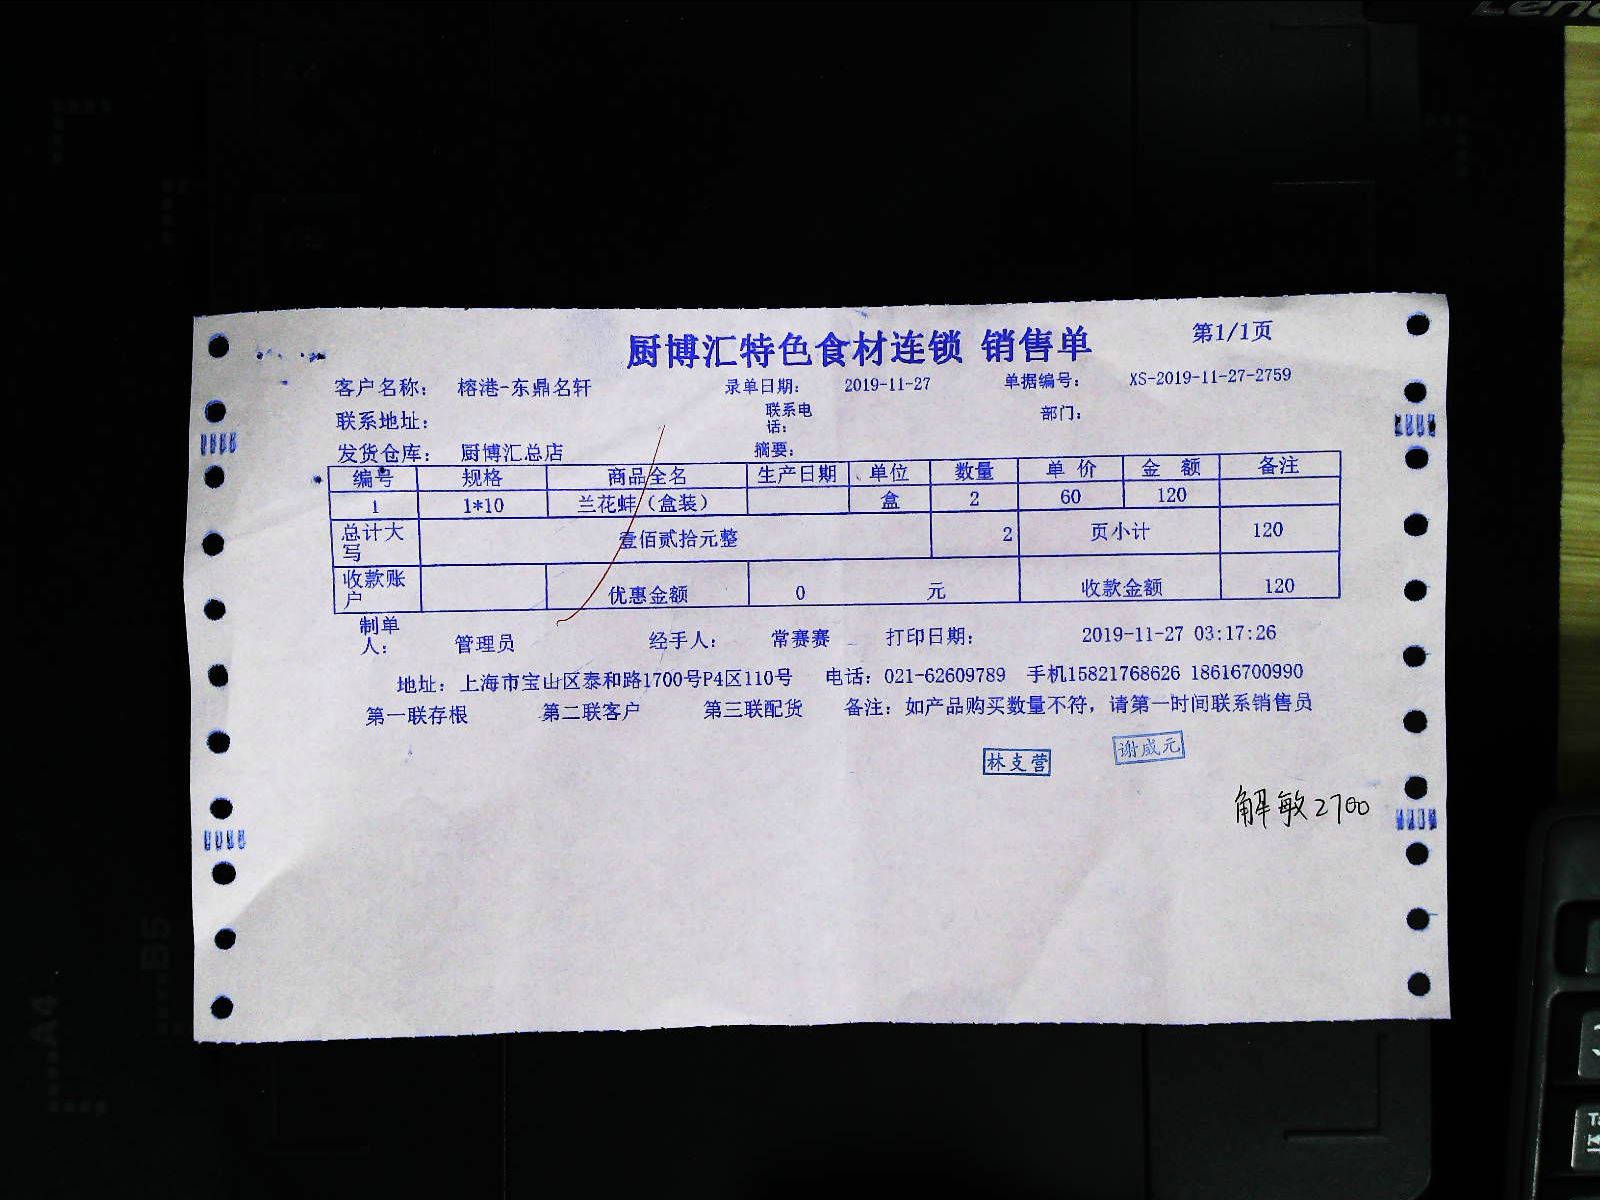 厨博汇特色食材连锁 销售单 第1/1页
客户名称： 榕港-东鼎名轩 录单日期： 2019-11-27 单据编号： XS-2019-11-27-2759
联系地址： 联系电话： 部门：
发货仓库： 厨博汇总店 摘要：
编号 规格 商品全名 生产日期 单位 数量 单 价 金 额 备注
1 1*10 兰花蚌（盒装） 盒 2 60 120
总计大写 壹佰贰拾元整 2 页小计 120
收款账户 优惠金额 0 元 收款金额 120
制单人： 管理员 经手人： 常赛赛 打印日期： 2019-11-27 03:17:26
地址：上海市宝山区泰和路1700号P4区110号 电话：021-62609789 手机15821768626 18616700990
第一联存根 第二联客户 第三联配货 备注：如产品购买数量不符，请第一时间联系销售员
林支营 谢威元
解敏2700
B5
A4